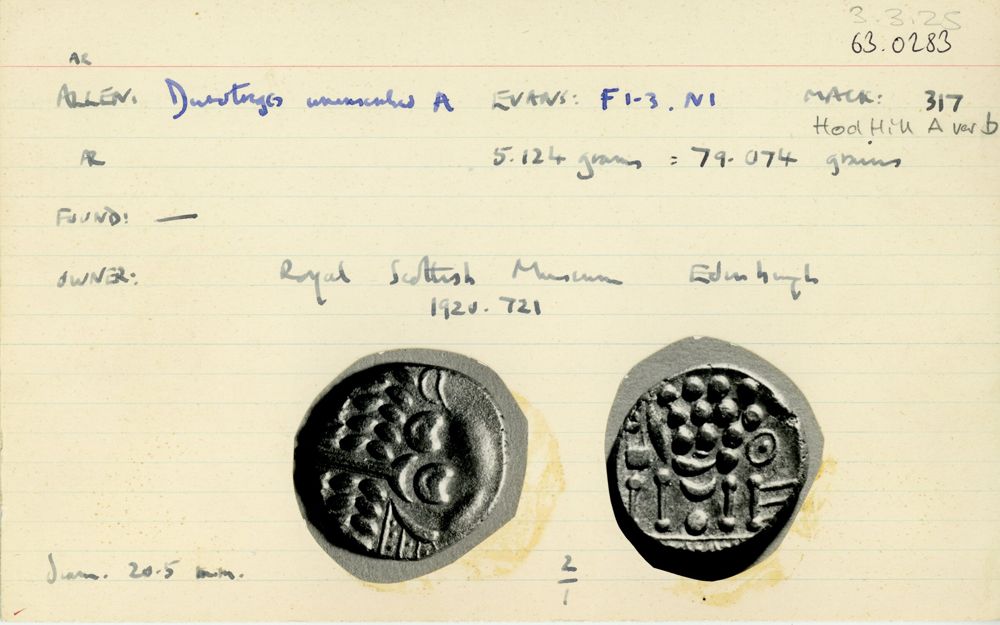 3.3.25
63.0283
AR
ALLEN: Durotriges uninscribed A EVANS: F1-3. N1 MACK: 317
Hod Hill A var b
AR 5.124 grams = 79.074 grains
FOUND: —
OWNER: Royal Scottish Museum Edinburgh
1920. 721
Diam. 20.5 mm. 2/1